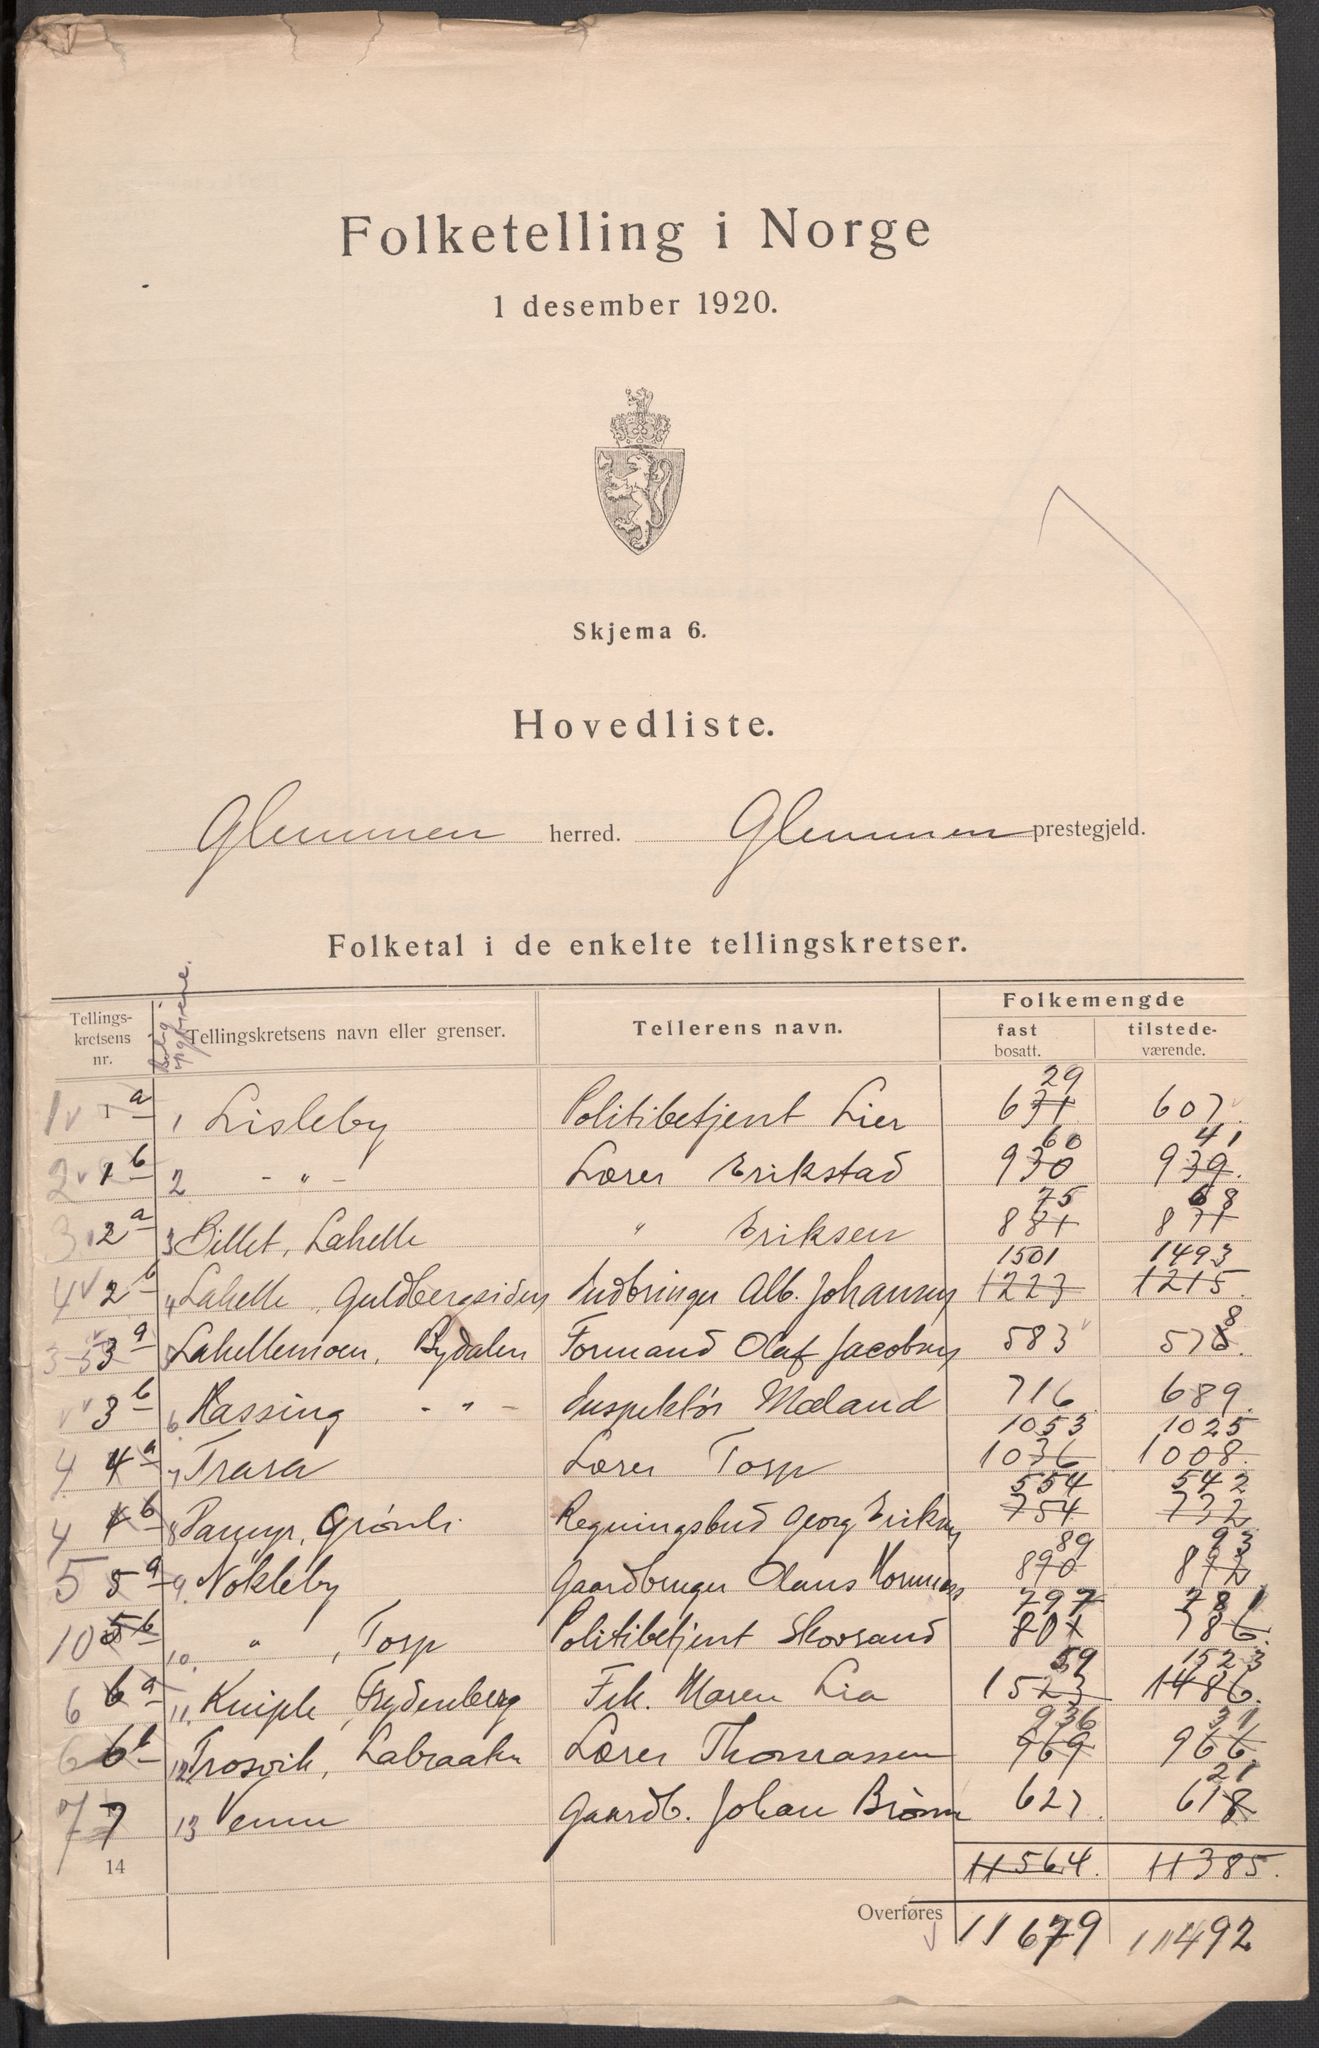 Folketelling i Norge
1 desember 1920.
Skjema 6.
Hovedliste.
Glemmen herred. Glemmen prestegjeld.
Folketal i de enkelte tellingskretser.
Tellings-kretsens nr. Tellingskretsens navn eller grenser. Tellerens navn. Folkemengde
fast bosatt. tilstede-værende.
29
1 1 a 1 Lisleby Politibetjent Lier 631 607
60 41
2 1 b 2 - " - Lærer Erikstad 930 939.
75 68
3 2 a 3 Lahelle " Eriksen 881 871
1501 1493
4 2 b 4 Lahelle, Guldbergsiden Indbringer Alb. Johansen 1223 1215.
8
3 3 a 5 Lahellemoen, Bydalen Formand Olaf Jacobsen 583 578.
3 b 6. Hassing - " - Inspektör Mæland 716 689.
1053 1025
4 4 a 7 Trara Lærer Torp 1036 1008.
554 542
4 4 b 8 Grönli Regningsbud Georg Eriksen 754 732
89 93
5 5 a 9. Nökleby Gaardbruger Olaus 890 892
797 781
10 5 b 10. " , Torp Politibetjent Skovsand 801 786.
59 1523
6 6 a 11. Kniple, Frydenberg Frk. Maren Lia 1523 1486.
936 31
6 6 b 12 Trosvik, Labraaten Lærer Thomassen 969 966.
21
7 7 13 Gaardb. Johan 627. 618
14 11564. 11385.
Overføres 11679 11492